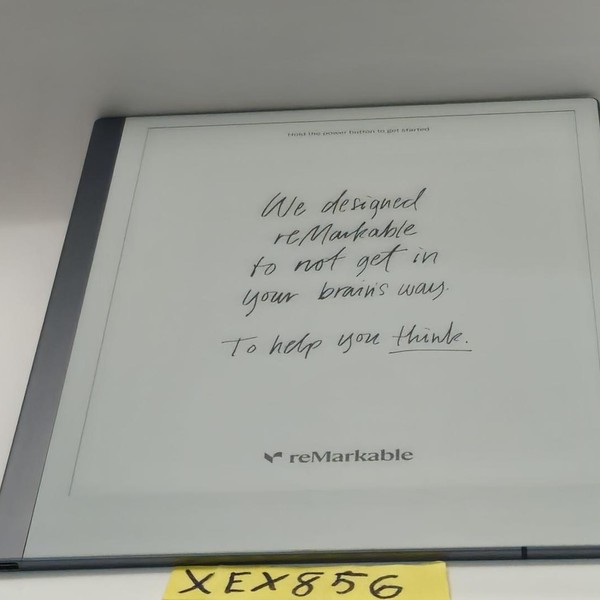 Hold the power button to get started
We designed
reMarkable
to not get in
your brain's way.
To help you think.
reMarkable
XEX856